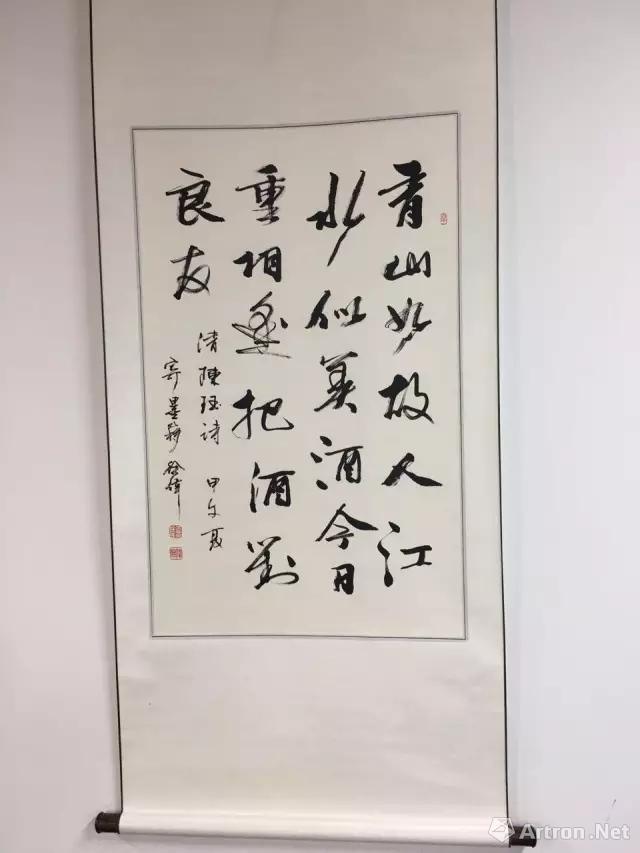 青山如故人江
水似美酒今日
重相逢把酒對
良友
清陳珏诗 甲午夏
Artron.Net